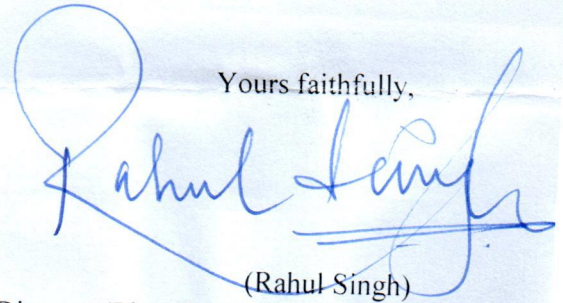 Yours faithfully,
Rahul Singh
(Rahul Singh)